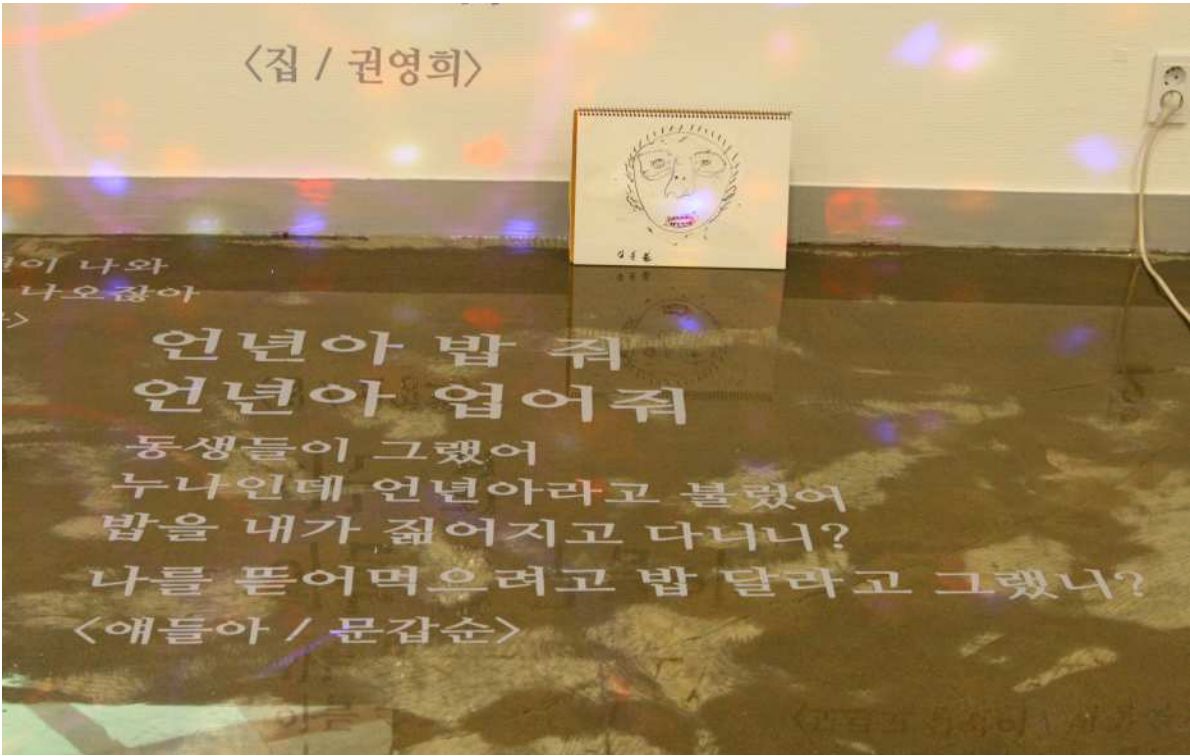 <집 / 권영희>
이 나와
나오잖아
언년아 밥 줘
언년아 업어줘
동생들이 그랬어
누나인데 언년아라고 불렀어
밥을 내가 짊어지고 다니니?
나를 뜯어먹으려고 밥 달라고 그랬니?
<얘들아 / 문갑순>